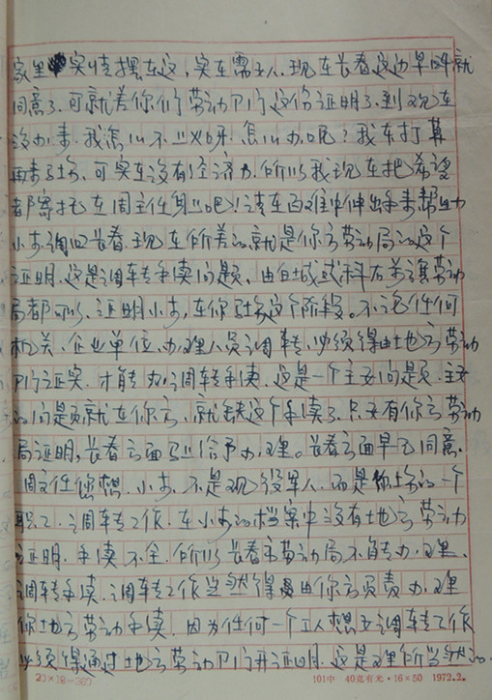 家里实情摆在这，实在需要人，现在长春这边早同意就
同意了，可就差你们劳动部门这份证明了，到现在
没办来，我怎么不上火呀，怎么办呢？我本打算
再来土城，可实在没有经济力，所以我现在把希望
都寄托在周主任身上吧！请在百难中伸出手来帮助
小李调回长春，现在所差的就是你方劳动局的这个
证明，这是调转手续问题，由土城或科右前旗劳动
局都可以，证明小李，在你土城这个阶段。不论任何
机关、企业单位，办理人员调转，必须得由地方劳动
部门证实，才能办调转手续，这是一个主要问题，主要
的问题就在你方，就缺这个手续了，只要有你方劳动
局证明，长春方面马上给予办理。长春方面早已同意，
周主任您想，小李，不是现役军人，而是你土城的一个
职工，调转工作，在小李的档案中没有地方劳动
证明，手续不全，所以长春市劳动局不能办理
调转手续，调转工作当然得由你方负责办理
你地方劳动手续，因为任何一个工人想要调转工作
必须得通过地方劳动部门开证明，这是理所当然的。
101中 40克有光·16×50 1972.2.